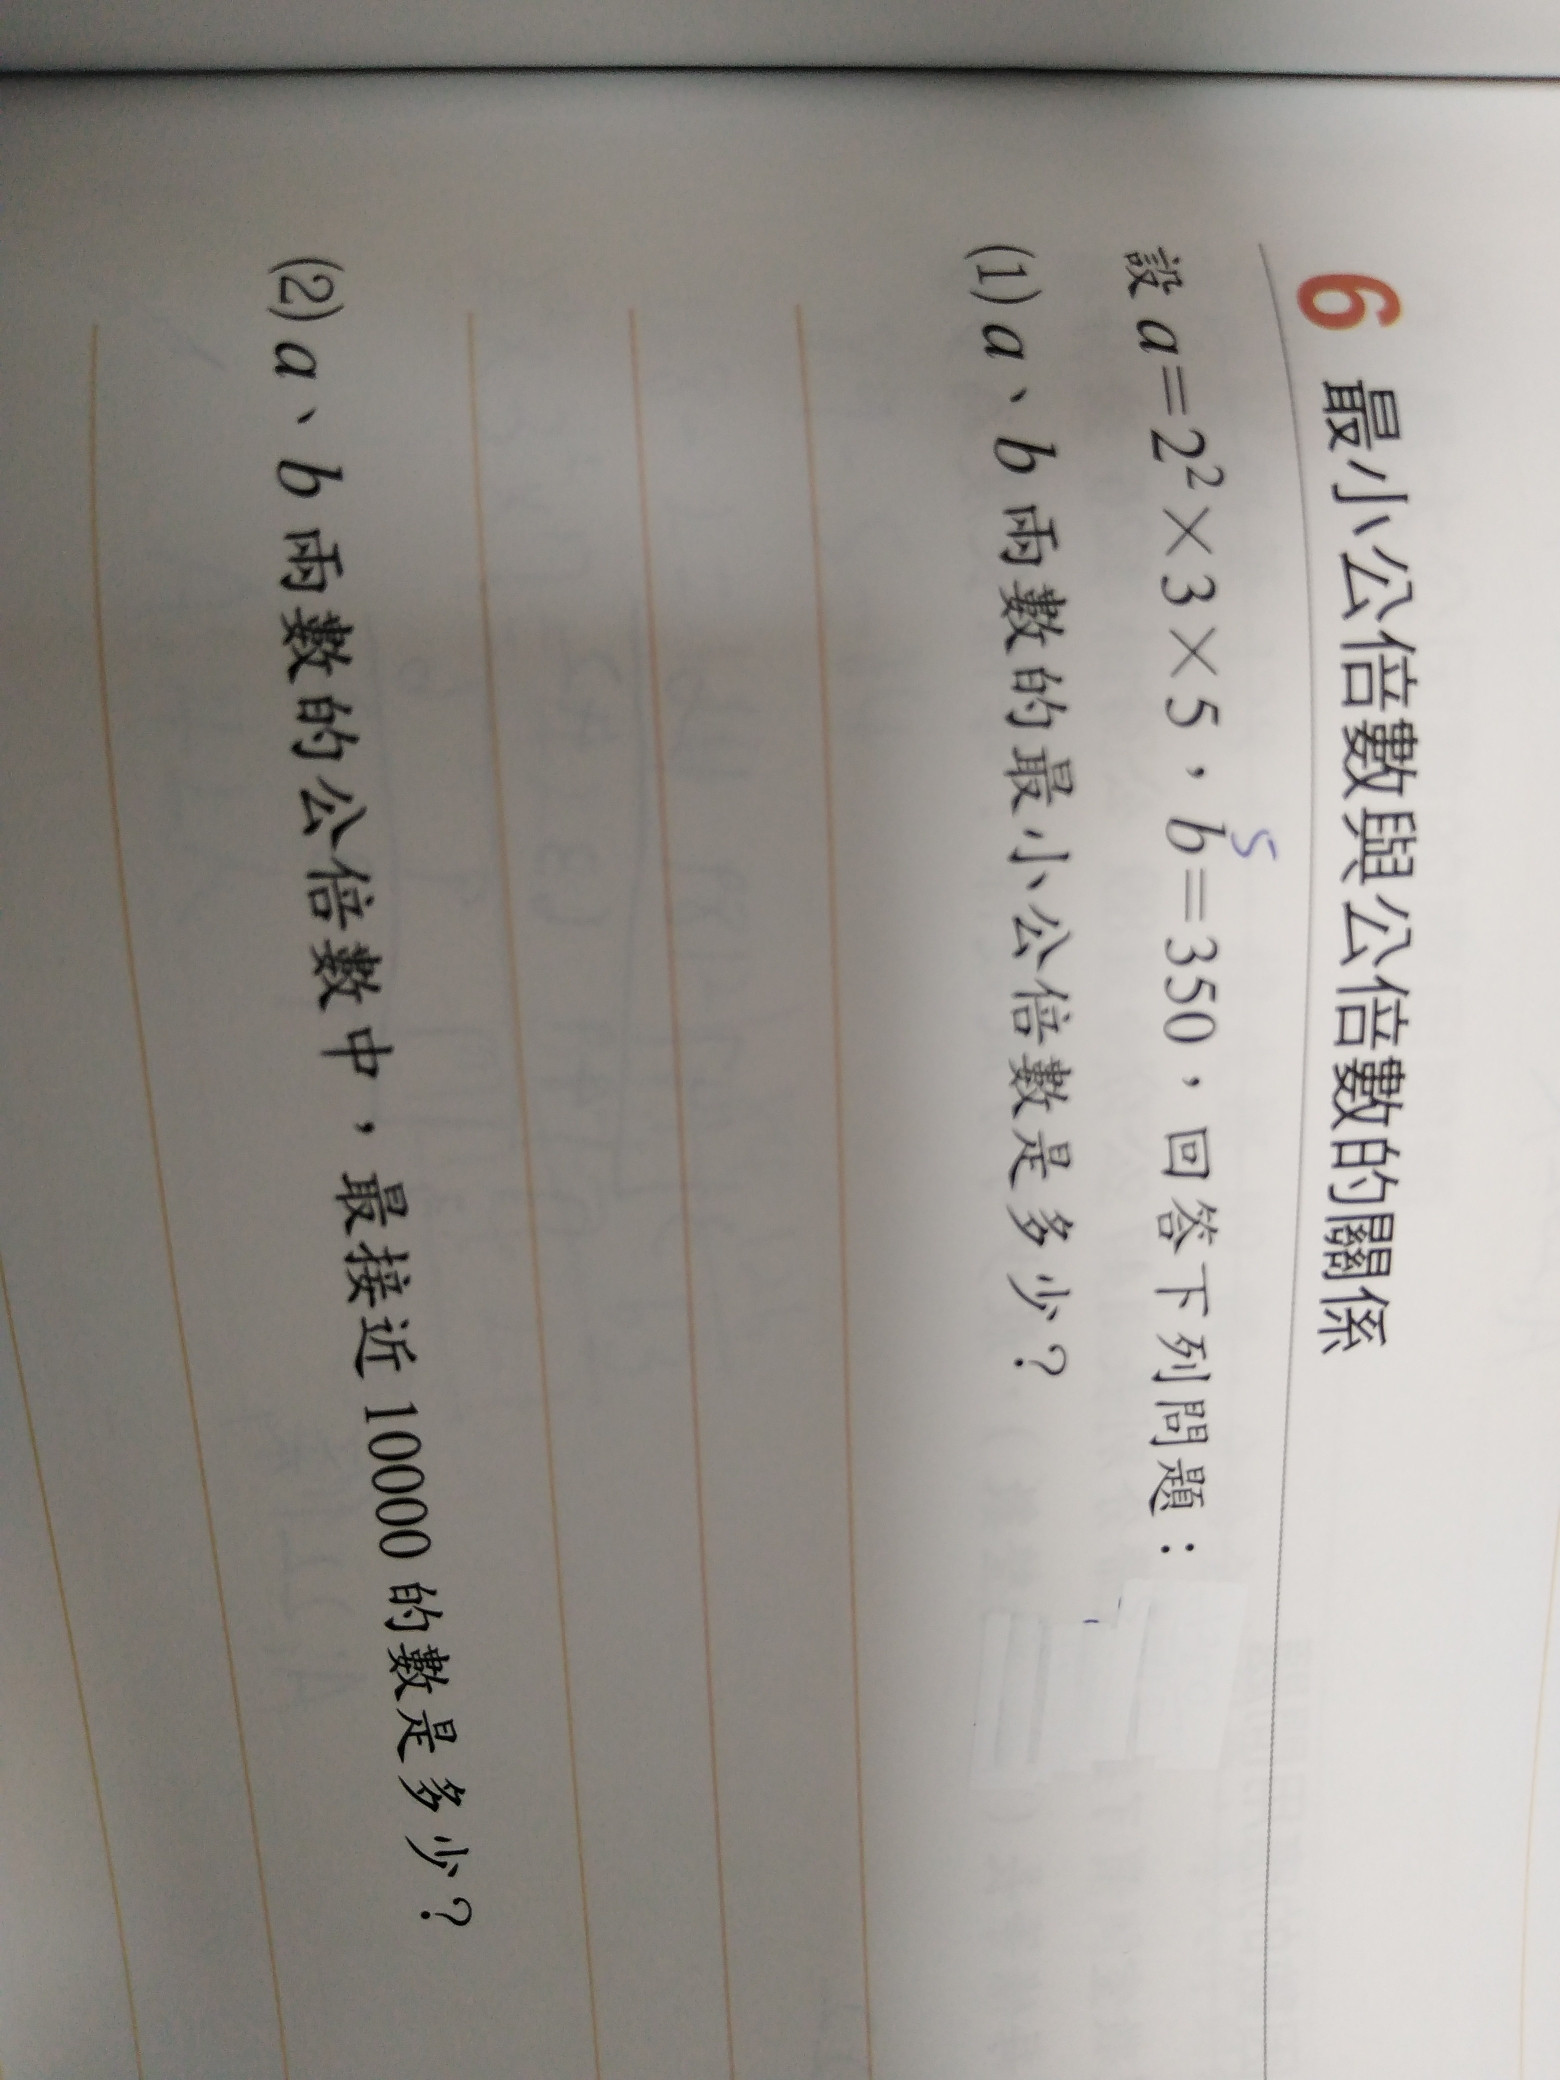 6 最小公倍數與公倍數的關係
設 a=2²×3×5，b=350，回答下列問題：
5
(1) a、b 兩數的最小公倍數是多少？
(2) a、b 兩數的公倍數中，最接近 10000 的數是多少？